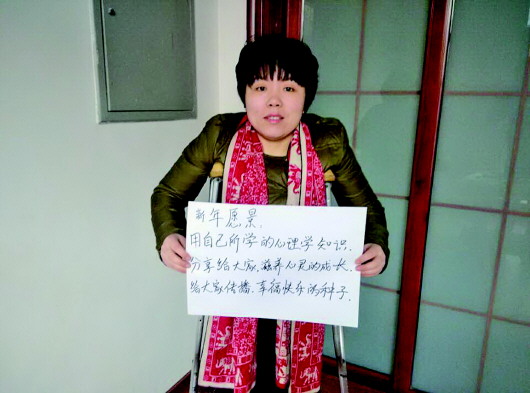 新年愿景.
用自己所学的心理学知识.
分享给大家.滋养心灵的成长.
给大家传播.幸福快乐的种子.